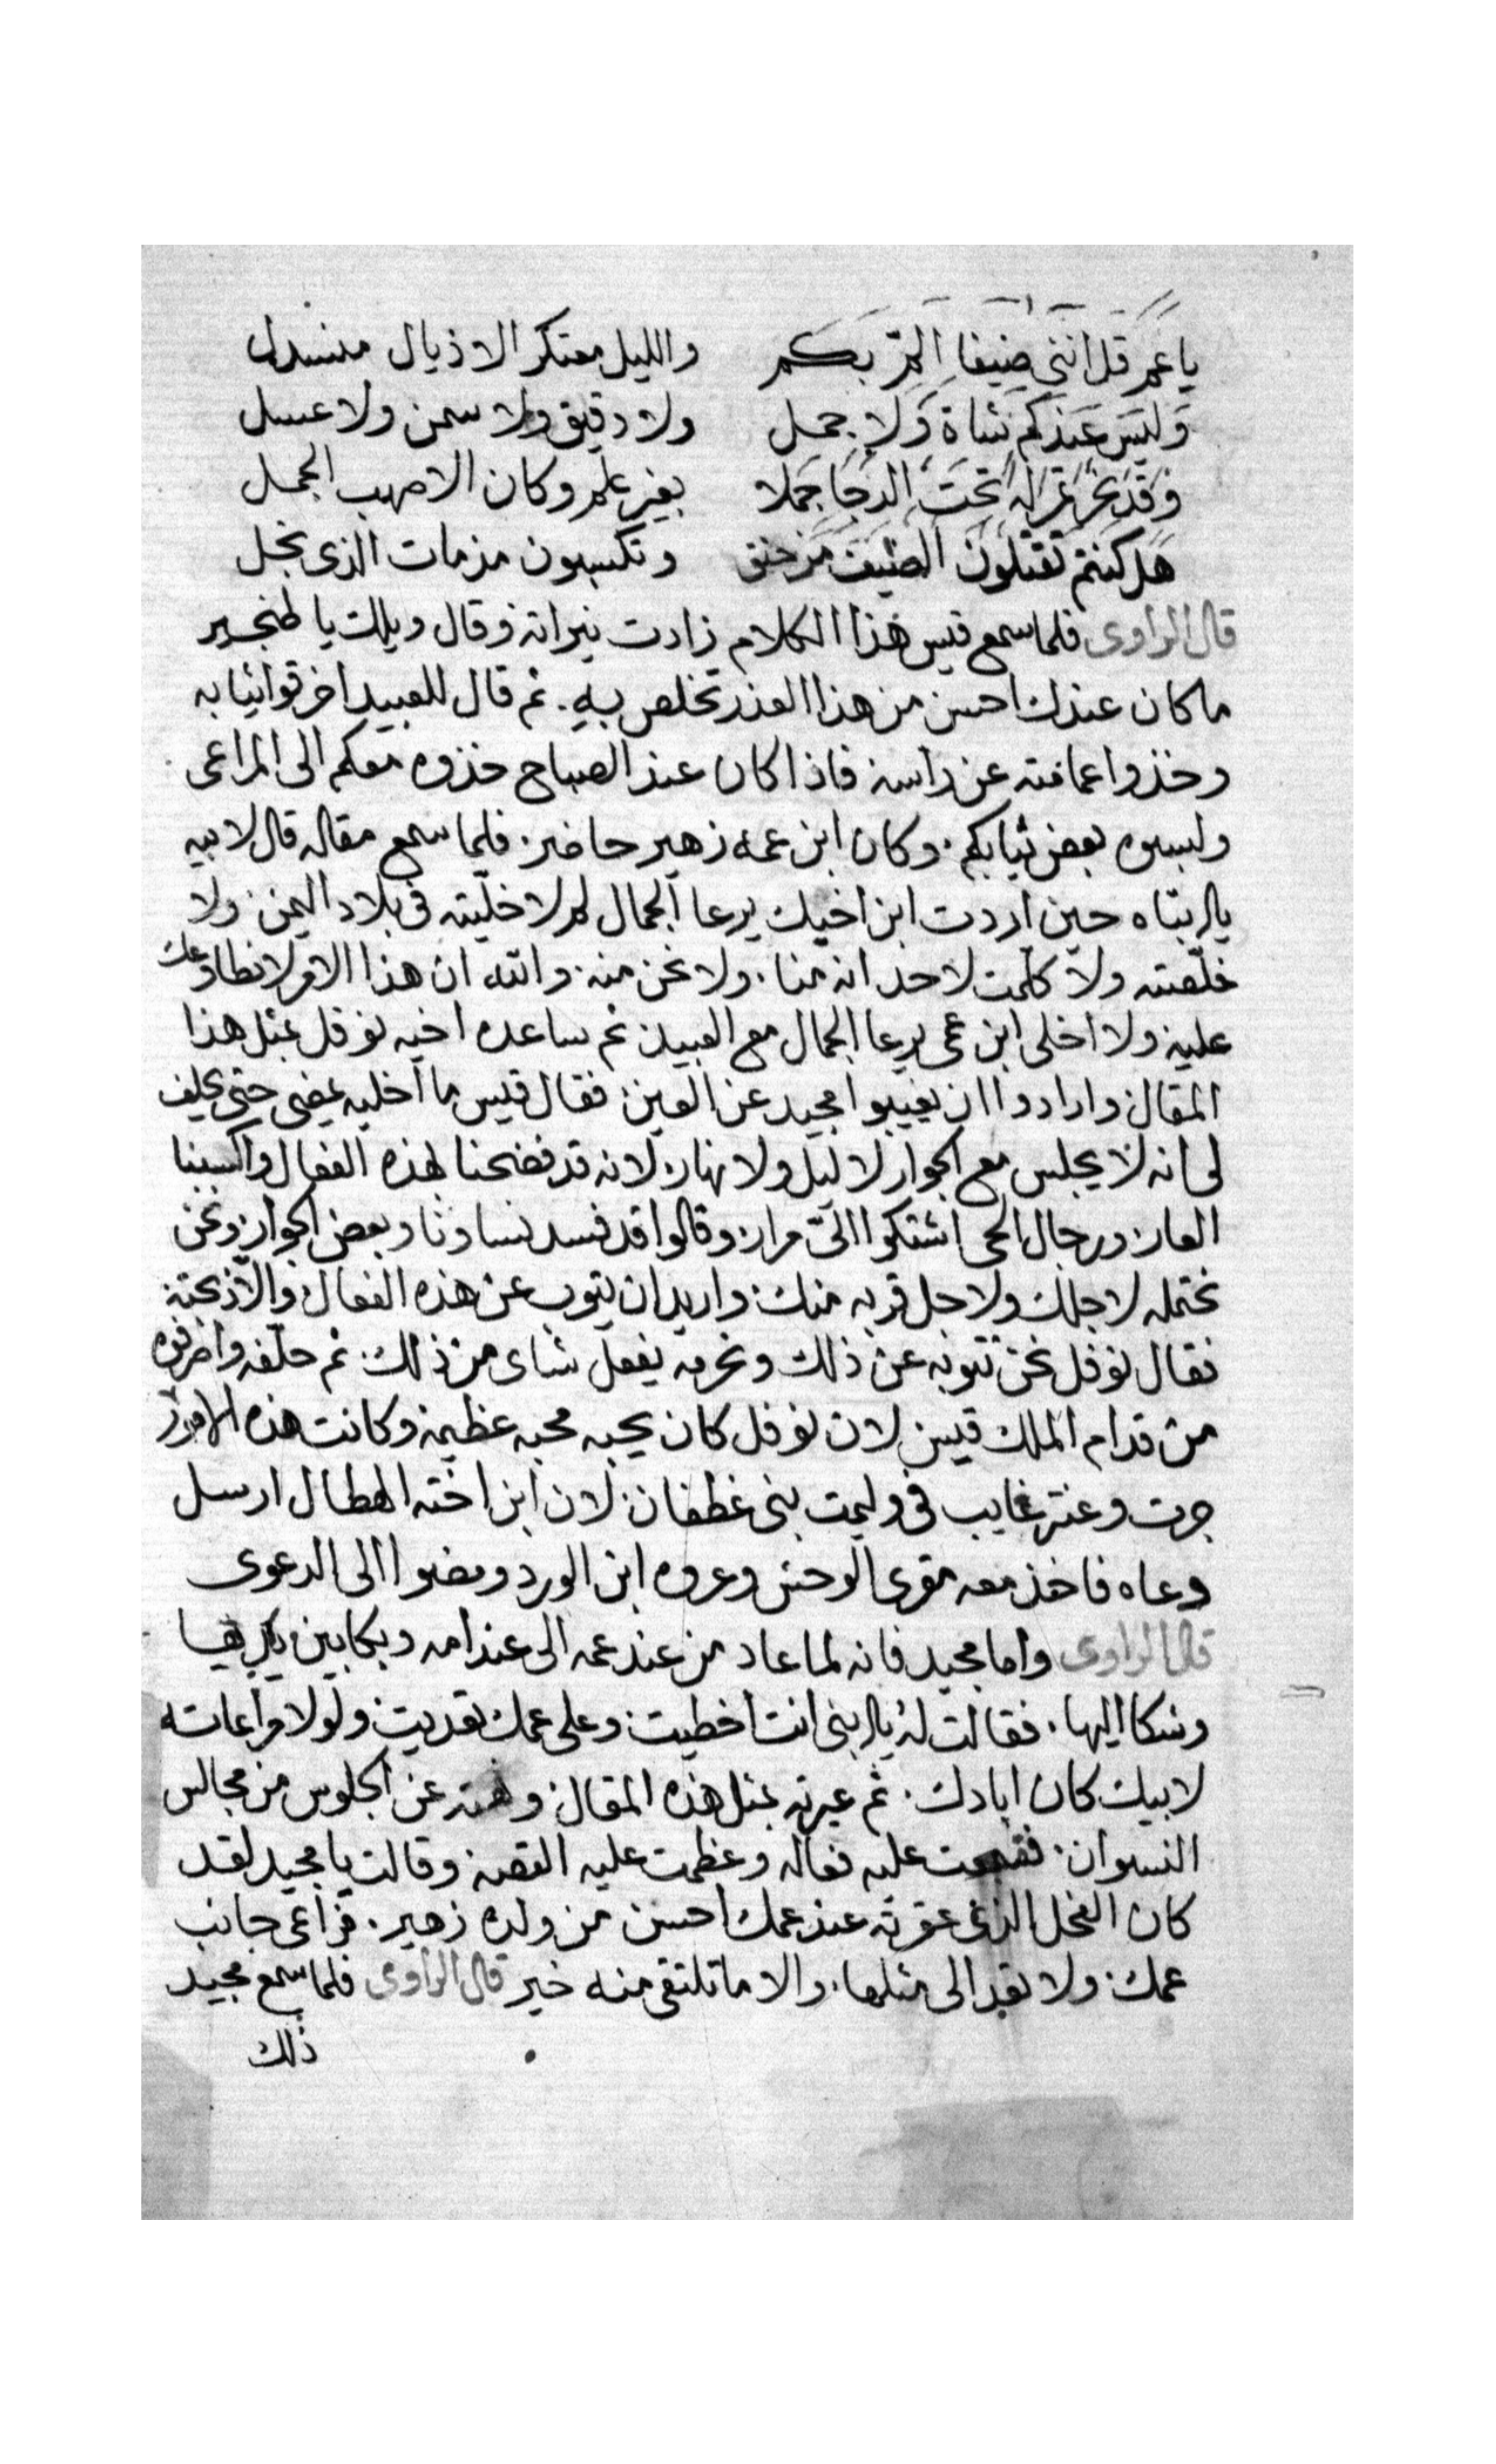 يا عم قل انني ضيفا المّ بكم والليل معتكر الاذيال منسدل
وليس عندكم شاة ولا جمل ولا دقيق ولا سمن ولا عسل
وقد نحر تحت الدجا جملا بغير علم وكان الاصهب الجمل
هل كنتم تقتلون الضيف من حنق وتكسبون مزمات الذي بخل
قال الراوى فلما سمع قيس هذا الكلام زادت نيرانه وقال ويلك يا طنجير
ما كان عندك احسن من هذا العذر تخلص به. ثم قال للعبيد اخرقوا ثيابه
وخذوا عمامته عن راسه فاذا كان عند الصباح خذوه معكم الى المراعى
ولبسوه بعض ثيابكم. وكان ابن عمه زهير حاضر. فلما سمع مقاله قال لابيه
يا ابتاه حين اردت ابن اخيك يرعا الجمال لم لا خليته فى بلاد اليمن. ولا
خلصته ولا كلمت لاحد انه منا. ولا نحن منه. والله ان هذا الامر لا نطاوعك
عليه ولا اخلى ابن عمى يرعا الجمال مع العبيد ثم ساعده اخيه نوفل بمثل هذا
المقال وارادوا ان يغيبوا مجيد عن العين. فقال قيس ما اخليه يمضى حتى يحلف
لى انه لا يجلس مع الجوار لا ليل ولا نهار. لانه قد فضحنا لهذه الفعال واكسبنا
العار. ورجال الحى اشتكوا الىّ مرار. وقالوا قد فسد نساونا وبعض الجوار ونحن
نحتمله لاجلك ولاجل قربه منك. واريد ان يتوب عن هذه الفعال والّا ذبحته
فقال نوفل نحن نتوبه عن ذلك ونحرمه يفعل شاى من ذلك. ثم حلّفه واخرجه
من قدام الملك قيس لان نوفل كان يحبه محبه عظيمه وكانت هذه الامور
جرت وعنتر غايب فى وليمت بنى غطفان. لان ابن اخته الهطال ارسل
دعاه فاخذ معه مقرى الوحش وعروه ابن الورد ومضوا الى الدعوى
قال الراوى واما مجيد فانه لما عاد من عند عمه الى عند امه وبكا بين يديها
وشكا اليها. فقالت له يا ابنى انت اخطيت. وعلى عمك تعديت ولولا مراعاته
لابيك كان ابادك. ثم عيرته بمثل هذه المقال ونهته عن الجلوس من مجالس
النسوان. فقبحت عليه فعاله وعظمت عليه القصه وقالت يا مجيد لقد
كان الفحل الذى عقرته عند عمك احسن من ولده زهير. فراعى جانب
عمك. ولا تعد الى مثلها. والا ما تلتقى منه خير قال الراوى فلما سمع مجيد
ذلك